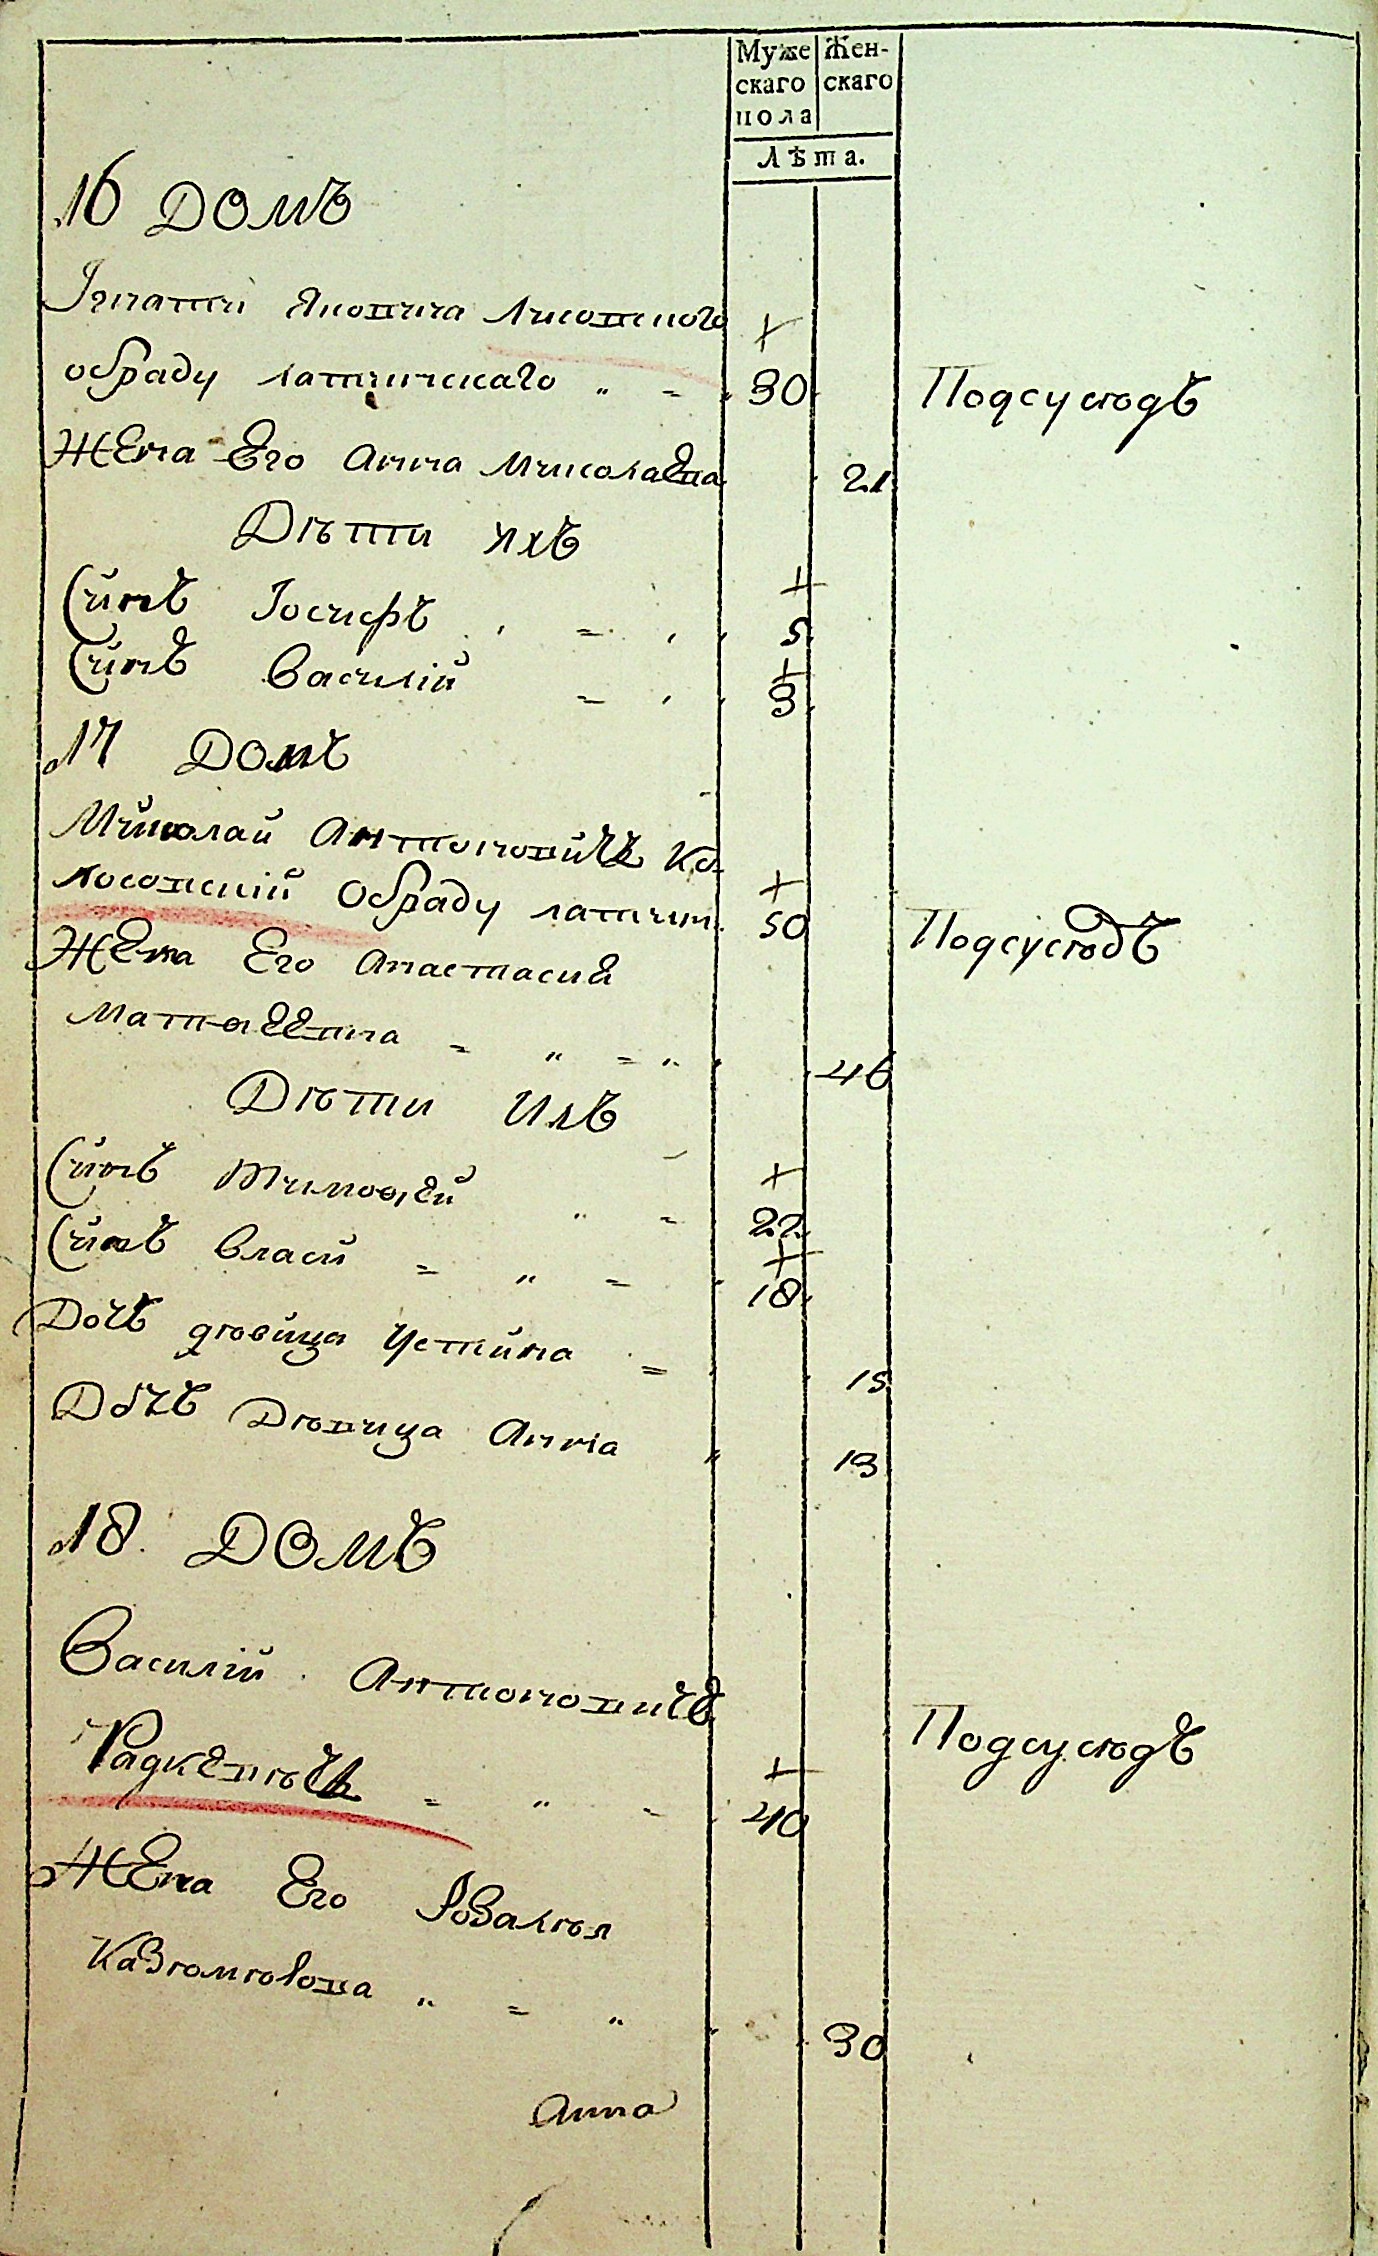 Муже Жен-
скаго скаго
пола
Лѣта.
16 Домъ
Игнатій Яковича Лисовского
обраду латинскаго „ = 30 Подсусюдъ
Жена Его Анна Миколаевна 21
Дѣти ихъ
Синъ Іосифъ , = , 5
Синъ Василій = , 3
17 Домъ
Миколай Антоновичъ Ко-
лосовскій Обраду латин. 50 Подсусюдъ
Жена Его Анастасия
Матѳеевна = „ = „ 46
Дѣти Ихъ
Синъ Тимоѳей „ = 22
Синъ Власи = „ = 18
Дочъ дювица Устина = 15
Дочъ Дювица Анна „ 13
18. Домъ
Василій Антоновичъ
Радкевичъ = „ = 40 Подсусюдъ
Жена Его Розалія
Казюмировна „ = „ 30
Анна